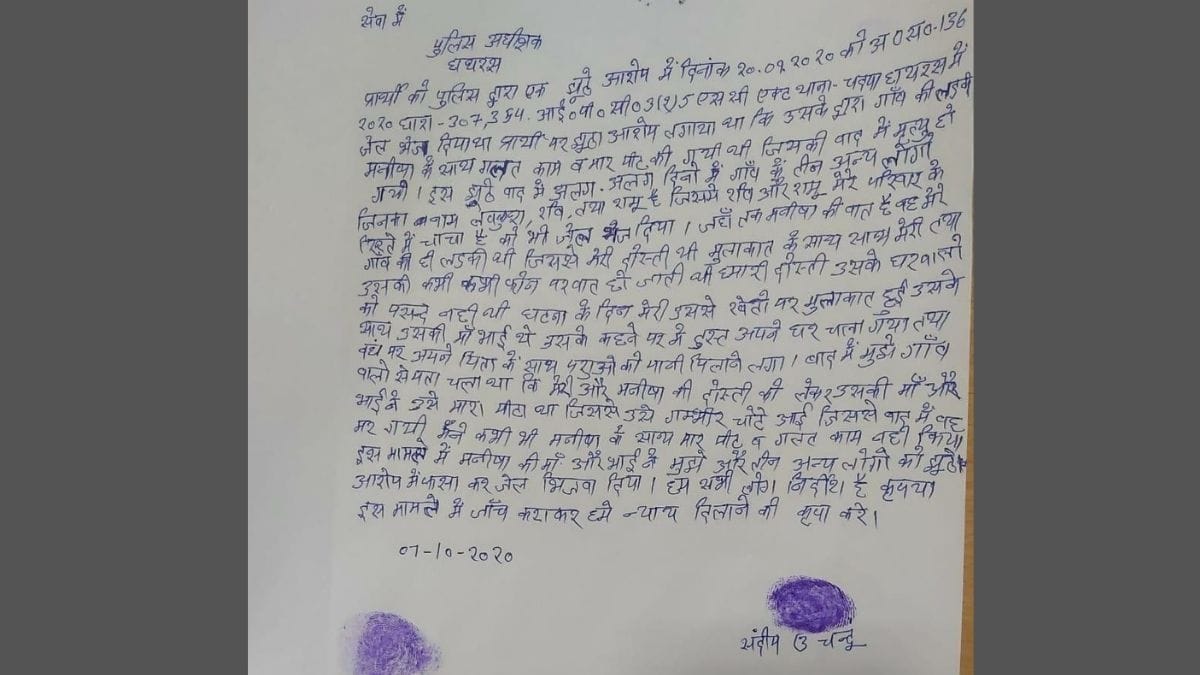 सेवा में
पुलिस अधीक्षक
हाथरस
प्रार्थी को पुलिस द्वारा एक झूठे आरोप में दिनांक २०.०९.२०२० को अ०स०-136
२०२० धारा-307,354. आई०पी०सी० 3(२)5 एस सी एक्ट थाना-चन्दपा हाथरस में
जेल भेज दिया था प्रार्थी पर झूठा आरोप लगाया था कि उसके द्वारा गाँव की लड़की
मनीषा के साथ गलत काम व मार पीट की गयी थी जिसकी बाद में मृत्यु हो
गयी। इस झूठे वाद में अलग-अलग दिनों में गाँव के तीन अन्य लोगों
जिनका नाम लवकुश, रवि, तथा रामू है जिसमे रवि और रामू मेरे परिवार के
रिश्ते में चाचा है को भी जेल भेज दिया। जहाँ तक मनीषा की बात है वह मेरे
गाँव की ही लड़की थी जिससे मेरी दोस्ती थी मुलाकात के साथ साथ मेरी तथा
उसकी कभी कभी फोन पर बात हो जाती थी हमारी दोस्ती उसके घरवालो
को पसन्द नही थी घटना के दिन मेरी उससे खेतो पर मुलाकात हुई उसके
साथ उसकी माँ भाई थे उसके कहने पर मै तुरन्त अपने घर चला गया तथा
वहं पर अपने पिता के साथ पशुओ को पानी पिलाने लगा। बाद में मुझे गाँव
वालो से पता चला था कि मेरी और मनीषा की दोस्ती को लेकर उसकी माँ और
भाई ने उसे मारा पीटा था जिससे उसे गम्भीर चोटे आई जिससे बाद में वह
मर गयी मैने कभी भी मनीषा के साथ मार पीट व गलत काम नही किया
इस मामले में मनीषा की माँ और भाई ने मुझे और तीन अन्य लोगो को झूठे
आरोप में फसा कर जेल भिजवा दिया। हम सभी लोग निर्दोश है कृपया
इस मामले में जाँच कराकर हमे न्याय दिलाने की कृपा करे।
07-10-२०२०
संदीप उ चन्दू